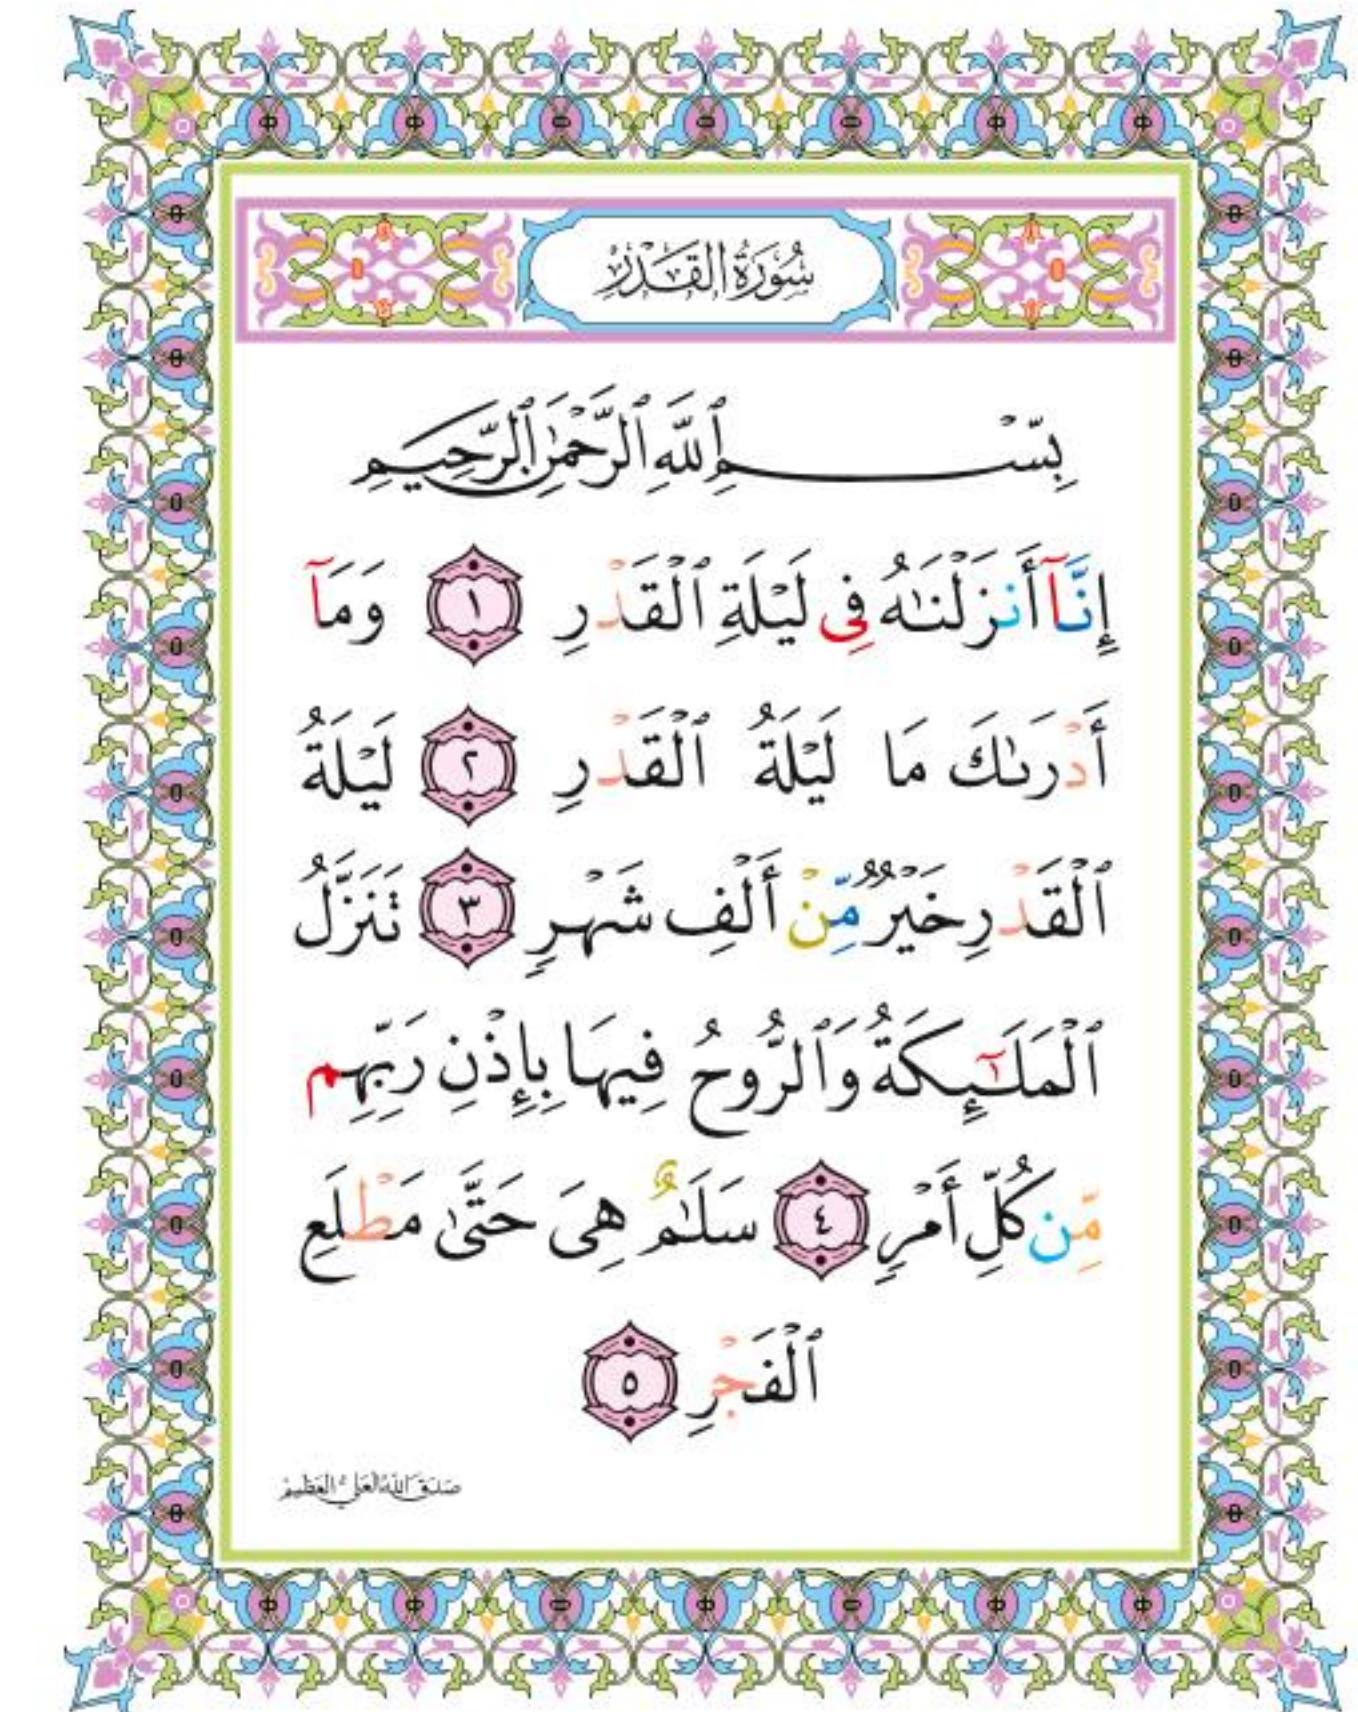 سُورَةُ القَدْرِ
بِسْمِ ٱللَّهِ ٱلرَّحْمَٰنِ ٱلرَّحِيمِ
إِنَّآ أَنزَلْنَٰهُ فِى لَيْلَةِ ٱلْقَدْرِ ١ وَمَآ
أَدْرَىٰكَ مَا لَيْلَةُ ٱلْقَدْرِ ٢ لَيْلَةُ
ٱلْقَدْرِ خَيْرٌ مِّنْ أَلْفِ شَهْرٍ ٣ تَنَزَّلُ
ٱلْمَلَٰٓئِكَةُ وَٱلرُّوحُ فِيهَا بِإِذْنِ رَبِّهِم
مِّن كُلِّ أَمْرٍ ٤ سَلَٰمٌ هِىَ حَتَّىٰ مَطْلَعِ
ٱلْفَجْرِ ٥
صَدَقَ اللّٰهُ العَلِيُّ العَظِيمُ